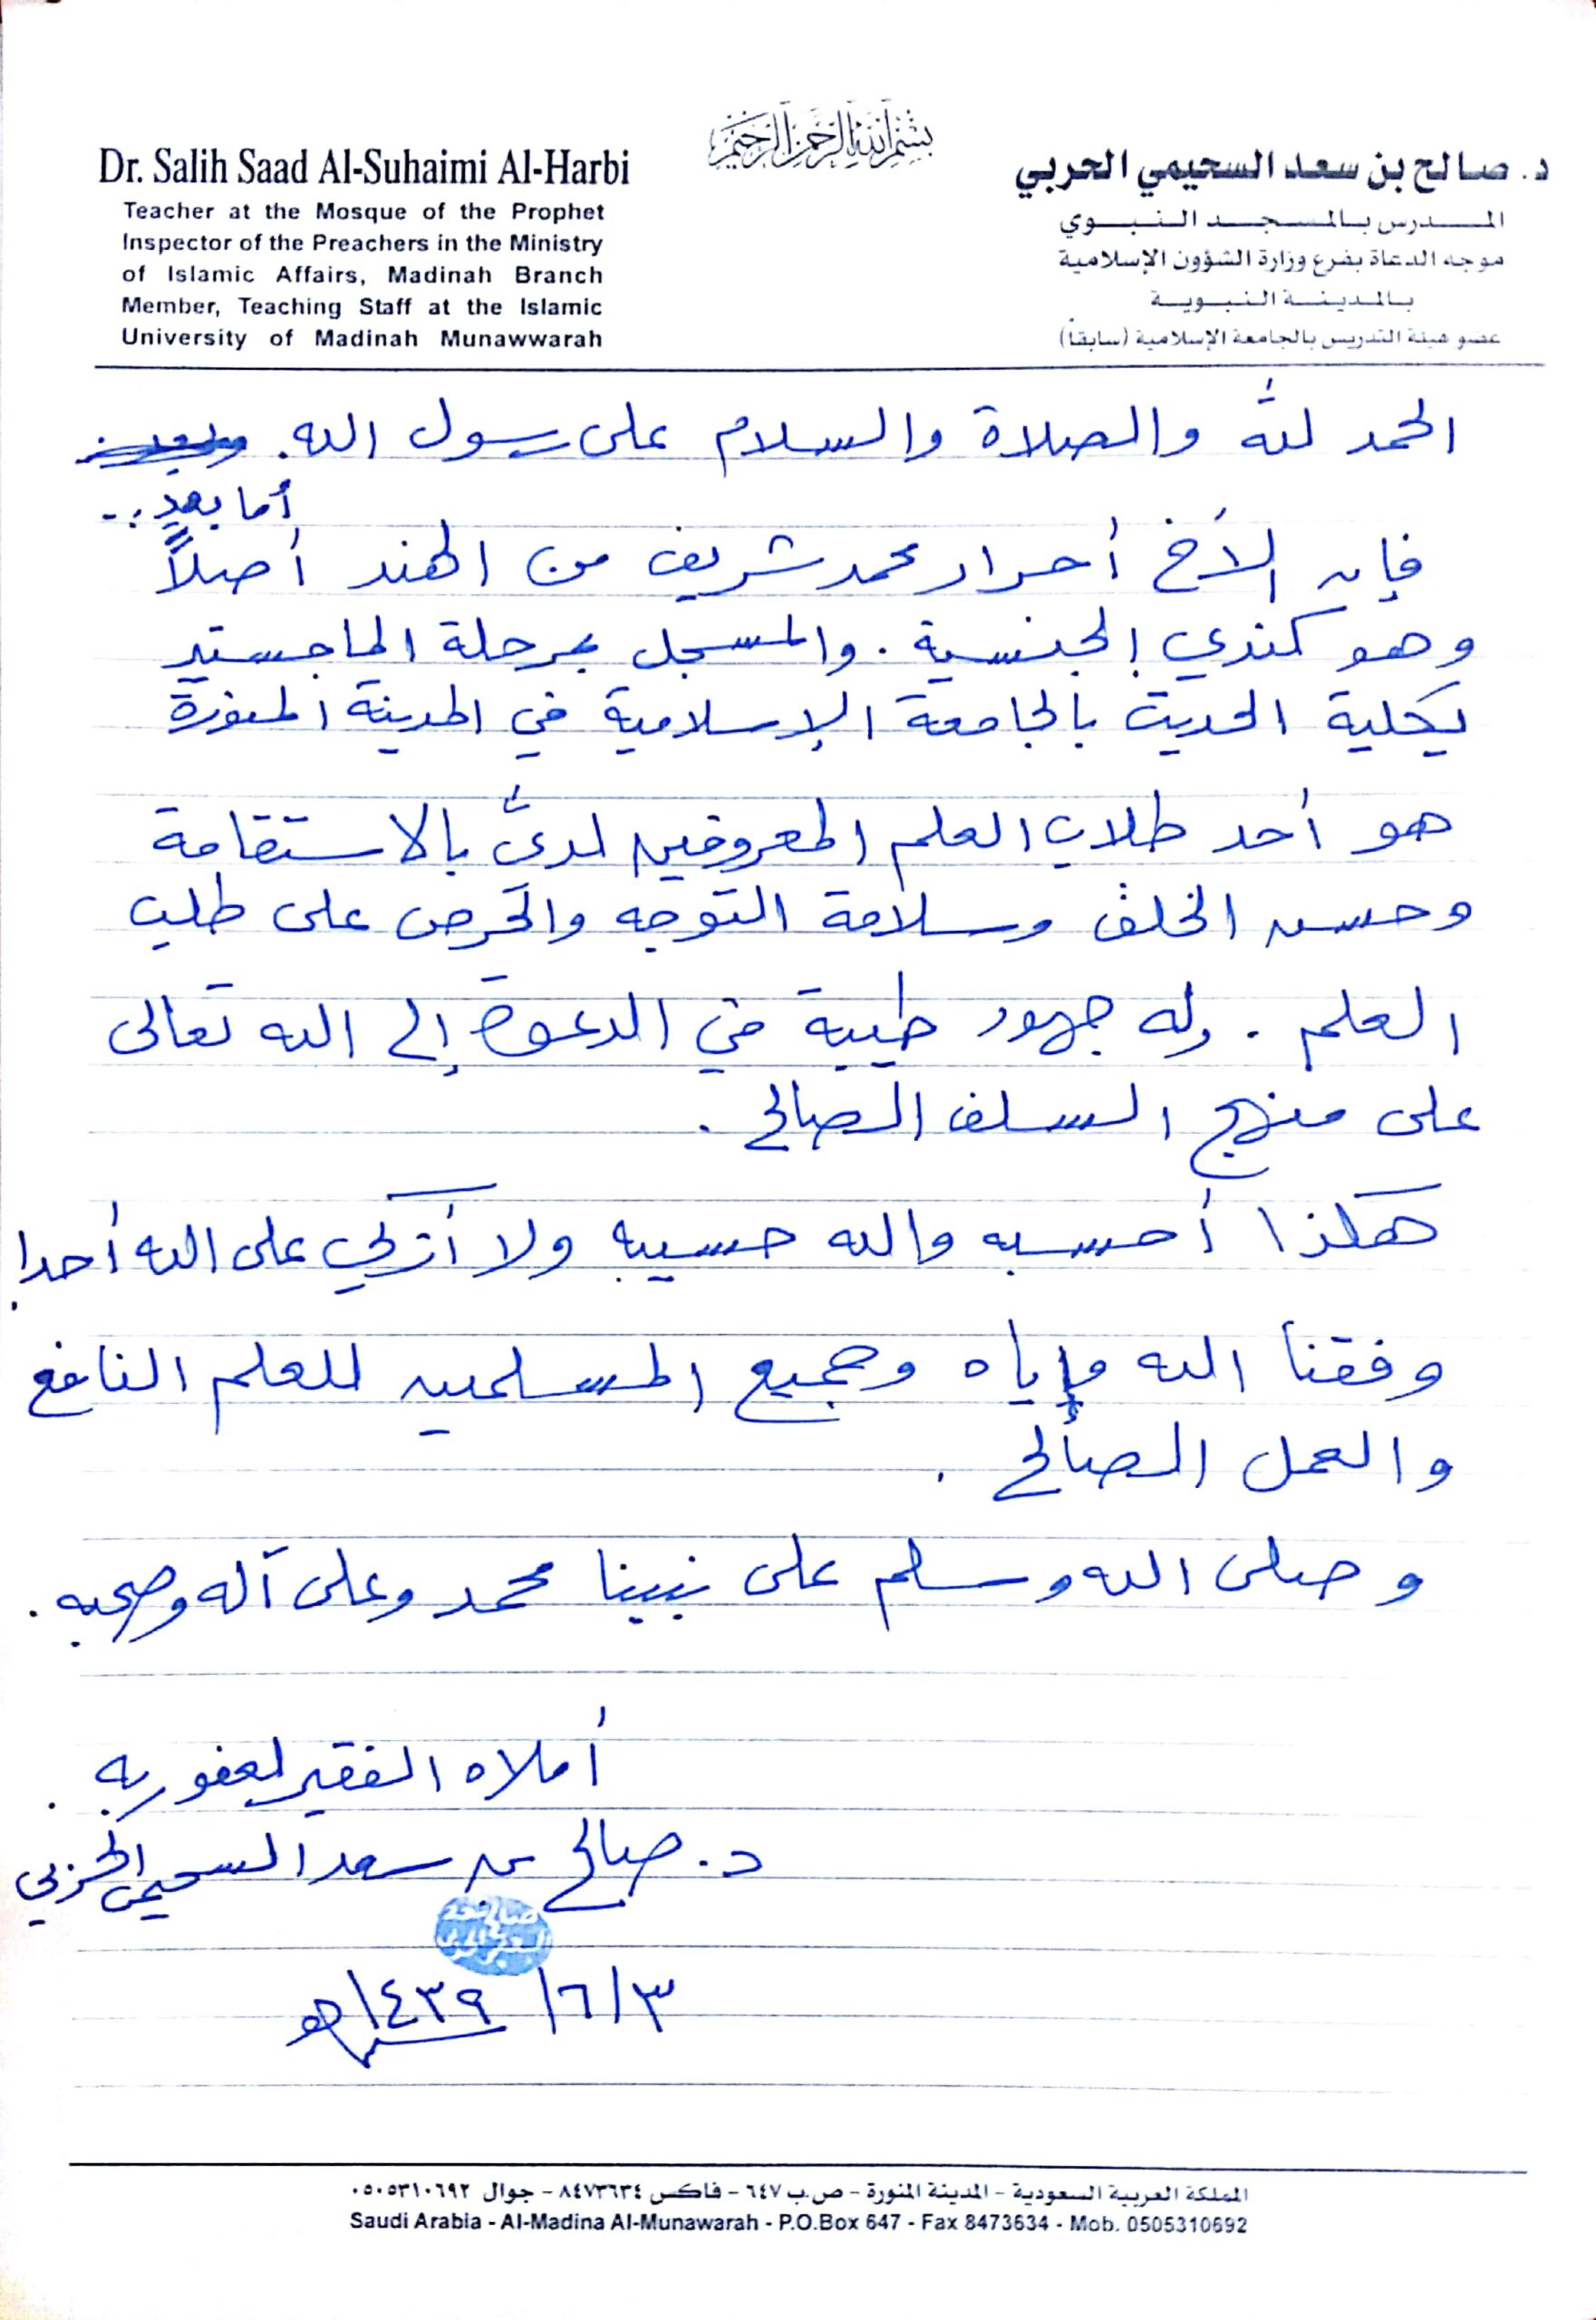 بسم الله الرحمن الرحيم
Dr. Salih Saad Al-Suhaimi Al-Harbi
Teacher at the Mosque of the Prophet
Inspector of the Preachers in the Ministry
of Islamic Affairs, Madinah Branch
Member, Teaching Staff at the Islamic
University of Madinah Munawwarah
د. صالح بن سعد السحيمي الحربي
المدرس بالمسجد النبوي
موجه الدعاة بفرع وزارة الشؤون الإسلامية
بالمدينة النبوية
عضو هيئة التدريس بالجامعة الإسلامية (سابقاً)
الحمد لله والصلاة والسلام على رسول الله.
أما بعد :-
فإن الأخ أحرار محمد شريف من الهند أصلاً
وهو كندي الجنسية. والمسجل بمرحلة الماجستير
بكلية الحديث بالجامعة الإسلامية في المدينة المنورة
هو أحد طلاب العلم المعروفين لديَّ بالاستقامة
وحسن الخلق وسلامة التوجه والحرص على طلب
العلم. وله جهود طيبة في الدعوة إلى الله تعالى
على منهج السلف الصالح.
هكذا أحسبه والله حسيبه ولا أزكي على الله أحدا.
وفقنا الله وإياه وجميع المسلمين للعلم النافع
والعمل الصالح.
وصلى الله وسلم على نبينا محمد وعلى آله وصحبه.
أملاه الفقير لعفو ربه.
د. صالح بن سعد السحيمي الحربي
٣/٦/١٤٣٩هـ
المملكة العربية السعودية - المدينة المنورة - ص.ب ٦٤٧ - فاكس ٨٤٧٣٦٣٤ - جوال ٠٥٠٥٣١٠٦٩٢
Saudi Arabia - Al-Madina Al-Munawarah - P.O.Box 647 - Fax 8473634 - Mob. 0505310692